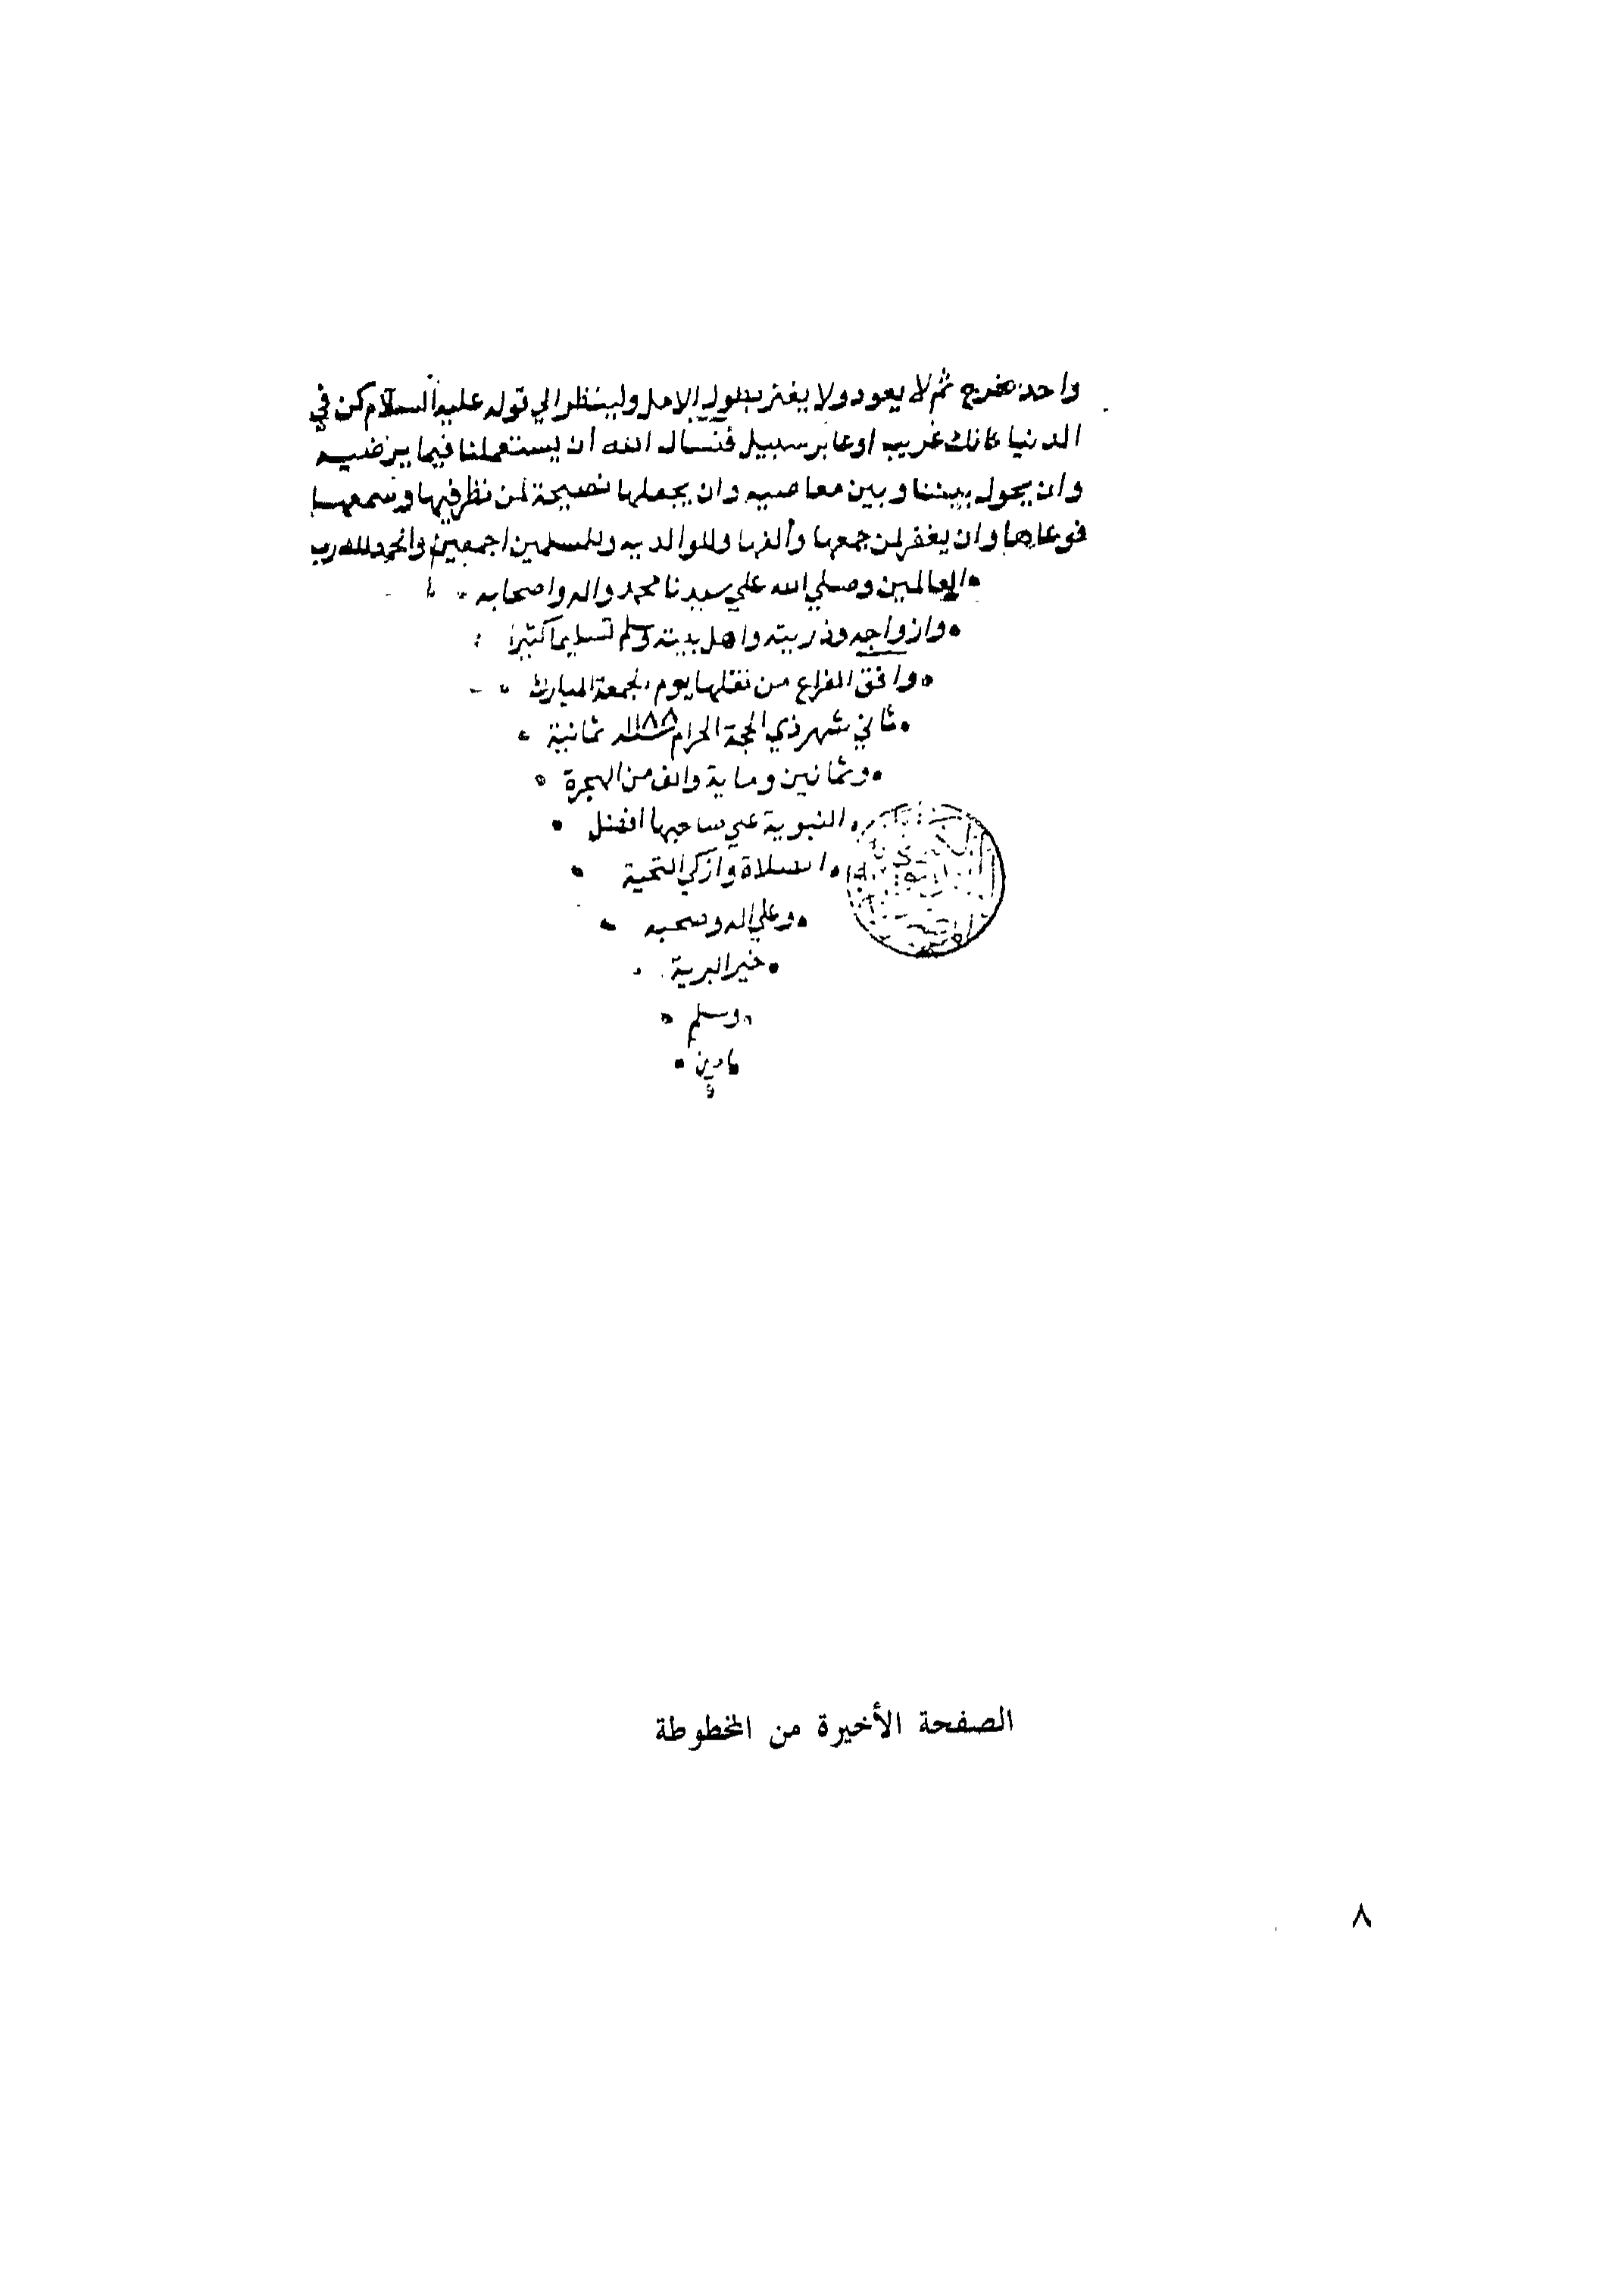 واحد مخرج ثم لا يعود ولا يغتر بطول الامل ولينظر الي قوله عليه السلام كن في
الدنيا كانك غريب او عابر سبيل فنسال الله ان يستعملنا فيما يرضيه
وان يحول بيننا وبين معاصيه وان يجعلها نصيحة لمن نظر فيها وسمعها
فوعاها وان يغفر لمن جمعها وألفها وللوالديه وللمسلمين اجمعين والحمد لله رب
العالمين وصلي الله علي سيدنا محمد واله واصحابه
وازواجه وذريته واهل بيته وسلم تسليما كثيرا
وافق الفراغ من نقلها يوم الجمعة المبارك
ثاني شهر ذي الحجة الحرام سنة ١١٨٨ ثمانية
وثمانين وماية والف من الهجرة
النبوية علي صاحبها افضل
الصلاة وازكي التحية
وعلي اله وصحبه
خير البرية
وسلم
امين
الصفحة الأخيرة من المخطوطة
٨